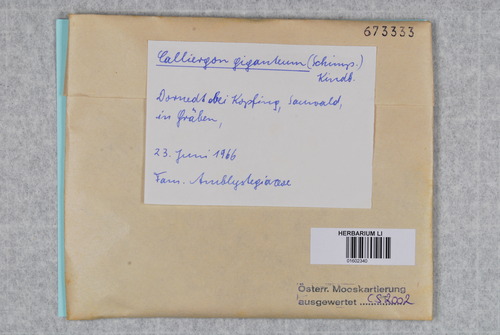 673333
Calliergon giganteum (Schimp.)
Kindb.
Dornedt bei Kopfing, Sauwald,
in Gräben,
23. Juni 1966
Fam. Amblystegiaceae
HERBARIUM LI
01602340
Österr. Mooskartierung
ausgewertet